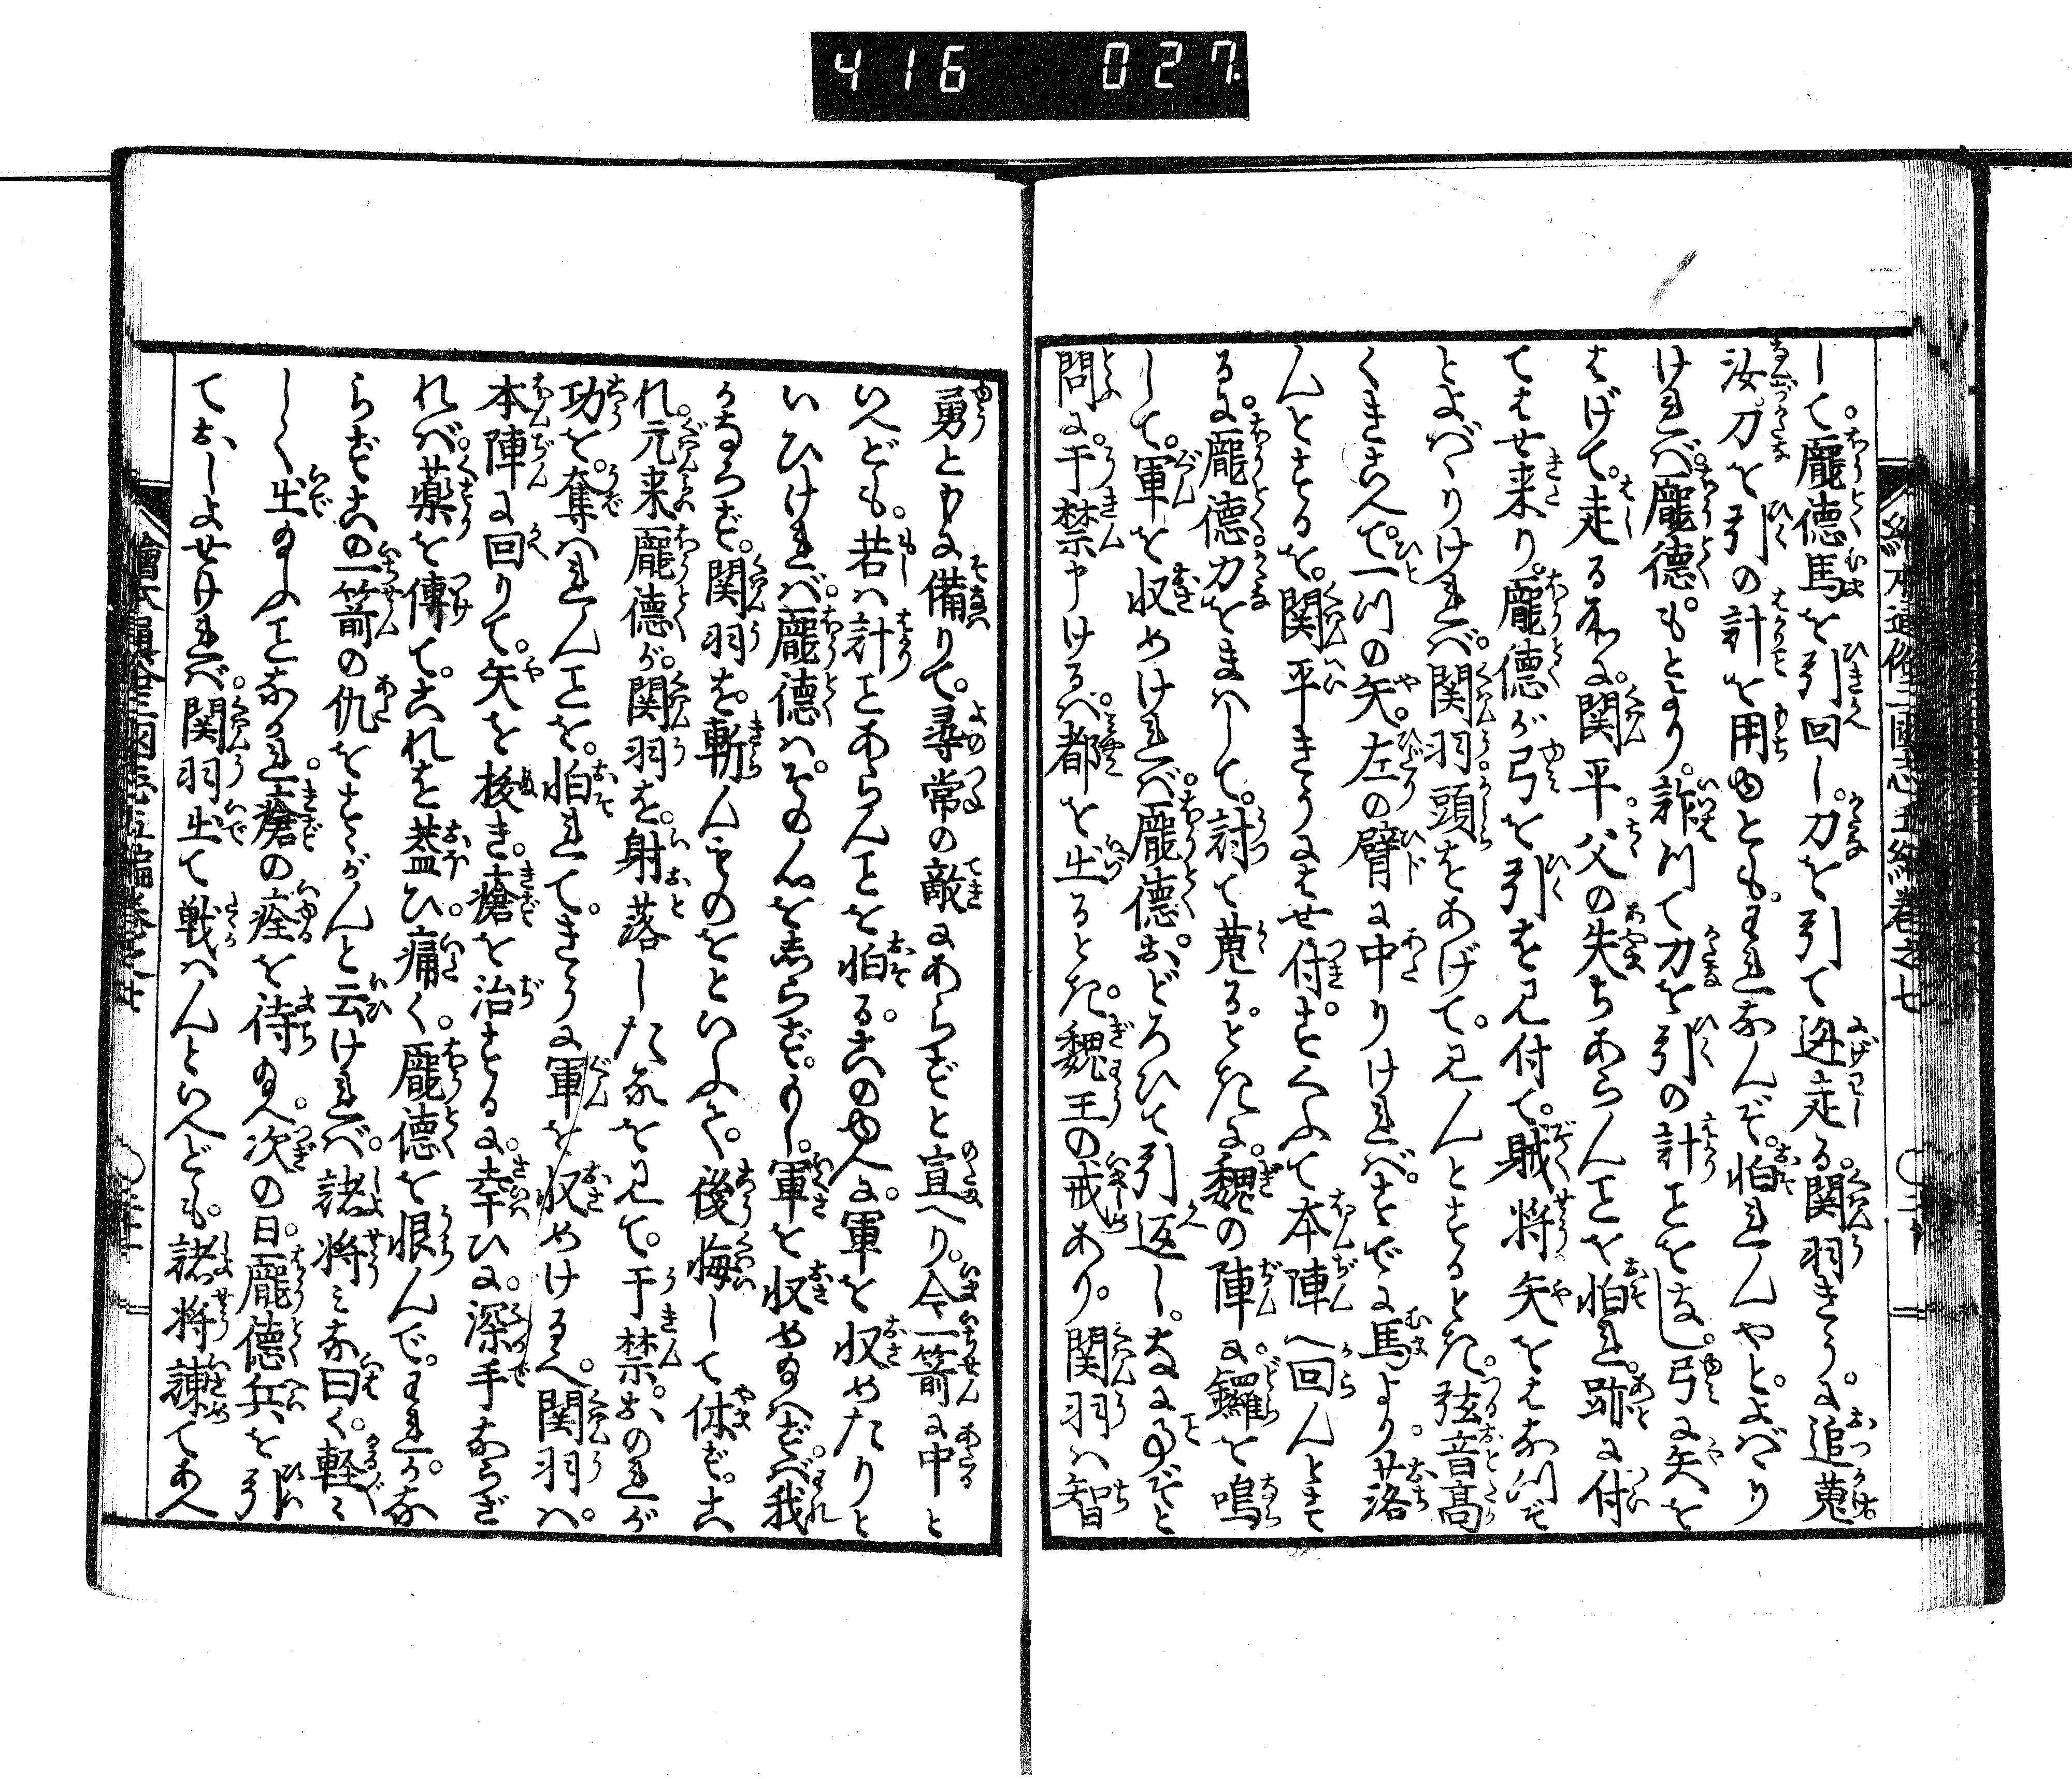 416 027
繪本通俗三國志五編卷之七
して。龐徳馬を引回し。刀を引て迯走る。関羽きうに。追蒐
汝。刀を引の計を用ゆとも。われなんぞ。怕れんやと。よばゝり
ければ。龐徳。もとより。詐りて刀を引の計ことをなし。弓に矢を
はげて。走る処に。関平父の失ちあらんことを怕れ。跡に付
てはせ来り。龐徳が弓を引を見付て。賊将矢をはなつぞ
とよばゝりければ。関羽。頭をあげて。見んとするとき。弦音高
くきこへて。一つの矢。左の臂に中りければ。すでに馬より。落
んとするを。関平きうにはせ付。すくふて本陣へ回んとす
るに。龐徳。刀をまはして。討て蒐る。ときに。魏の陣に。鑼を鳴
して。軍を収めければ。龐徳。おどろひて引返し。なに事ぞと
問に。于禁申けるは。都を出るとき。魏王の戒あり。関羽は智
勇ともに備りて。尋常の敵にあらずと宣へり。今一箭に中と
いへども。若は計ことあらんことを怕る。このゆへに。軍を収めたりと
いひければ。龐徳は。そのんをしらず。もし。軍を収め給はずんば。我
かならず。関羽を。斬んものをといふて。後悔して休ず。こ
れ。元来龐徳が。関羽を。射落したるを見て。于禁。おのれが
功を。奪はれんことを。怕れて。きうに軍を収めけるへ。関羽は。
本陣に回りて。矢を抜き。瘡を治するに。幸ひに。深手ならざ
れば。薬を傅て。これを蓋ひ。痛く。龐徳を恨んで。われ。かな
らずこの一箭の仇をすゝがんと云ければ。諸将みな曰く。軽々
しく出給ふことなかれ。瘡の痊を待給へ。次の日。龐徳兵を引
ておしよせければ。関羽出て戦はんといへども。諸将諫てあへ
繪本通俗三國志五編卷之七